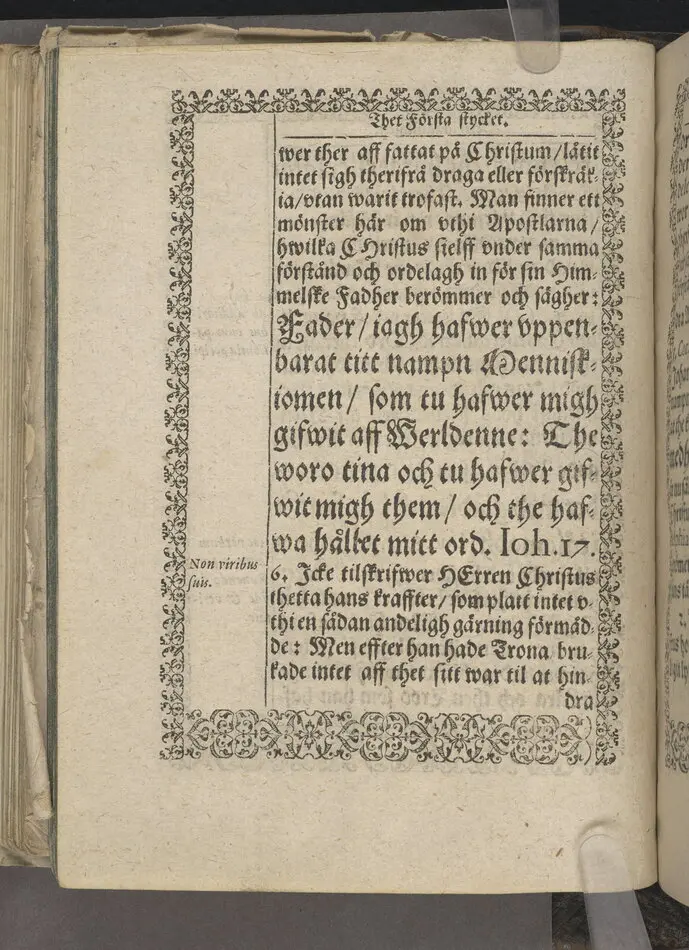 Thet Första stycket.
wer ther aff fattat på Christum / lätit
intet sigh therifrå draga eller förskräk-
ia / vtan warit trofast. Man finner ett
mönster här om vthi Apostlarna /
hwilka CHristus sielff vnder samma
förstånd och ordelagh in för sin Him-
melske Fadher berömmer och sägher:
Fader / iagh hafwer vppen-
barat titt nampn Mennisk-
iomen / som tu hafwer migh
gifwit aff Werldenne: The
woro tina och tu hafwer gif-
wit migh them / och the haf-
wa hållet mitt ord. Ioh. 17.
Non viribus
suis.
6. Icke tilskrifwer HErren Christus
thetta hans kraffter / som platt intet v-
thi en sådan andeligh gärning förmåd-
de: Men effter han hade Trona bru-
kade intet aff thet sitt war til at hin-
dra